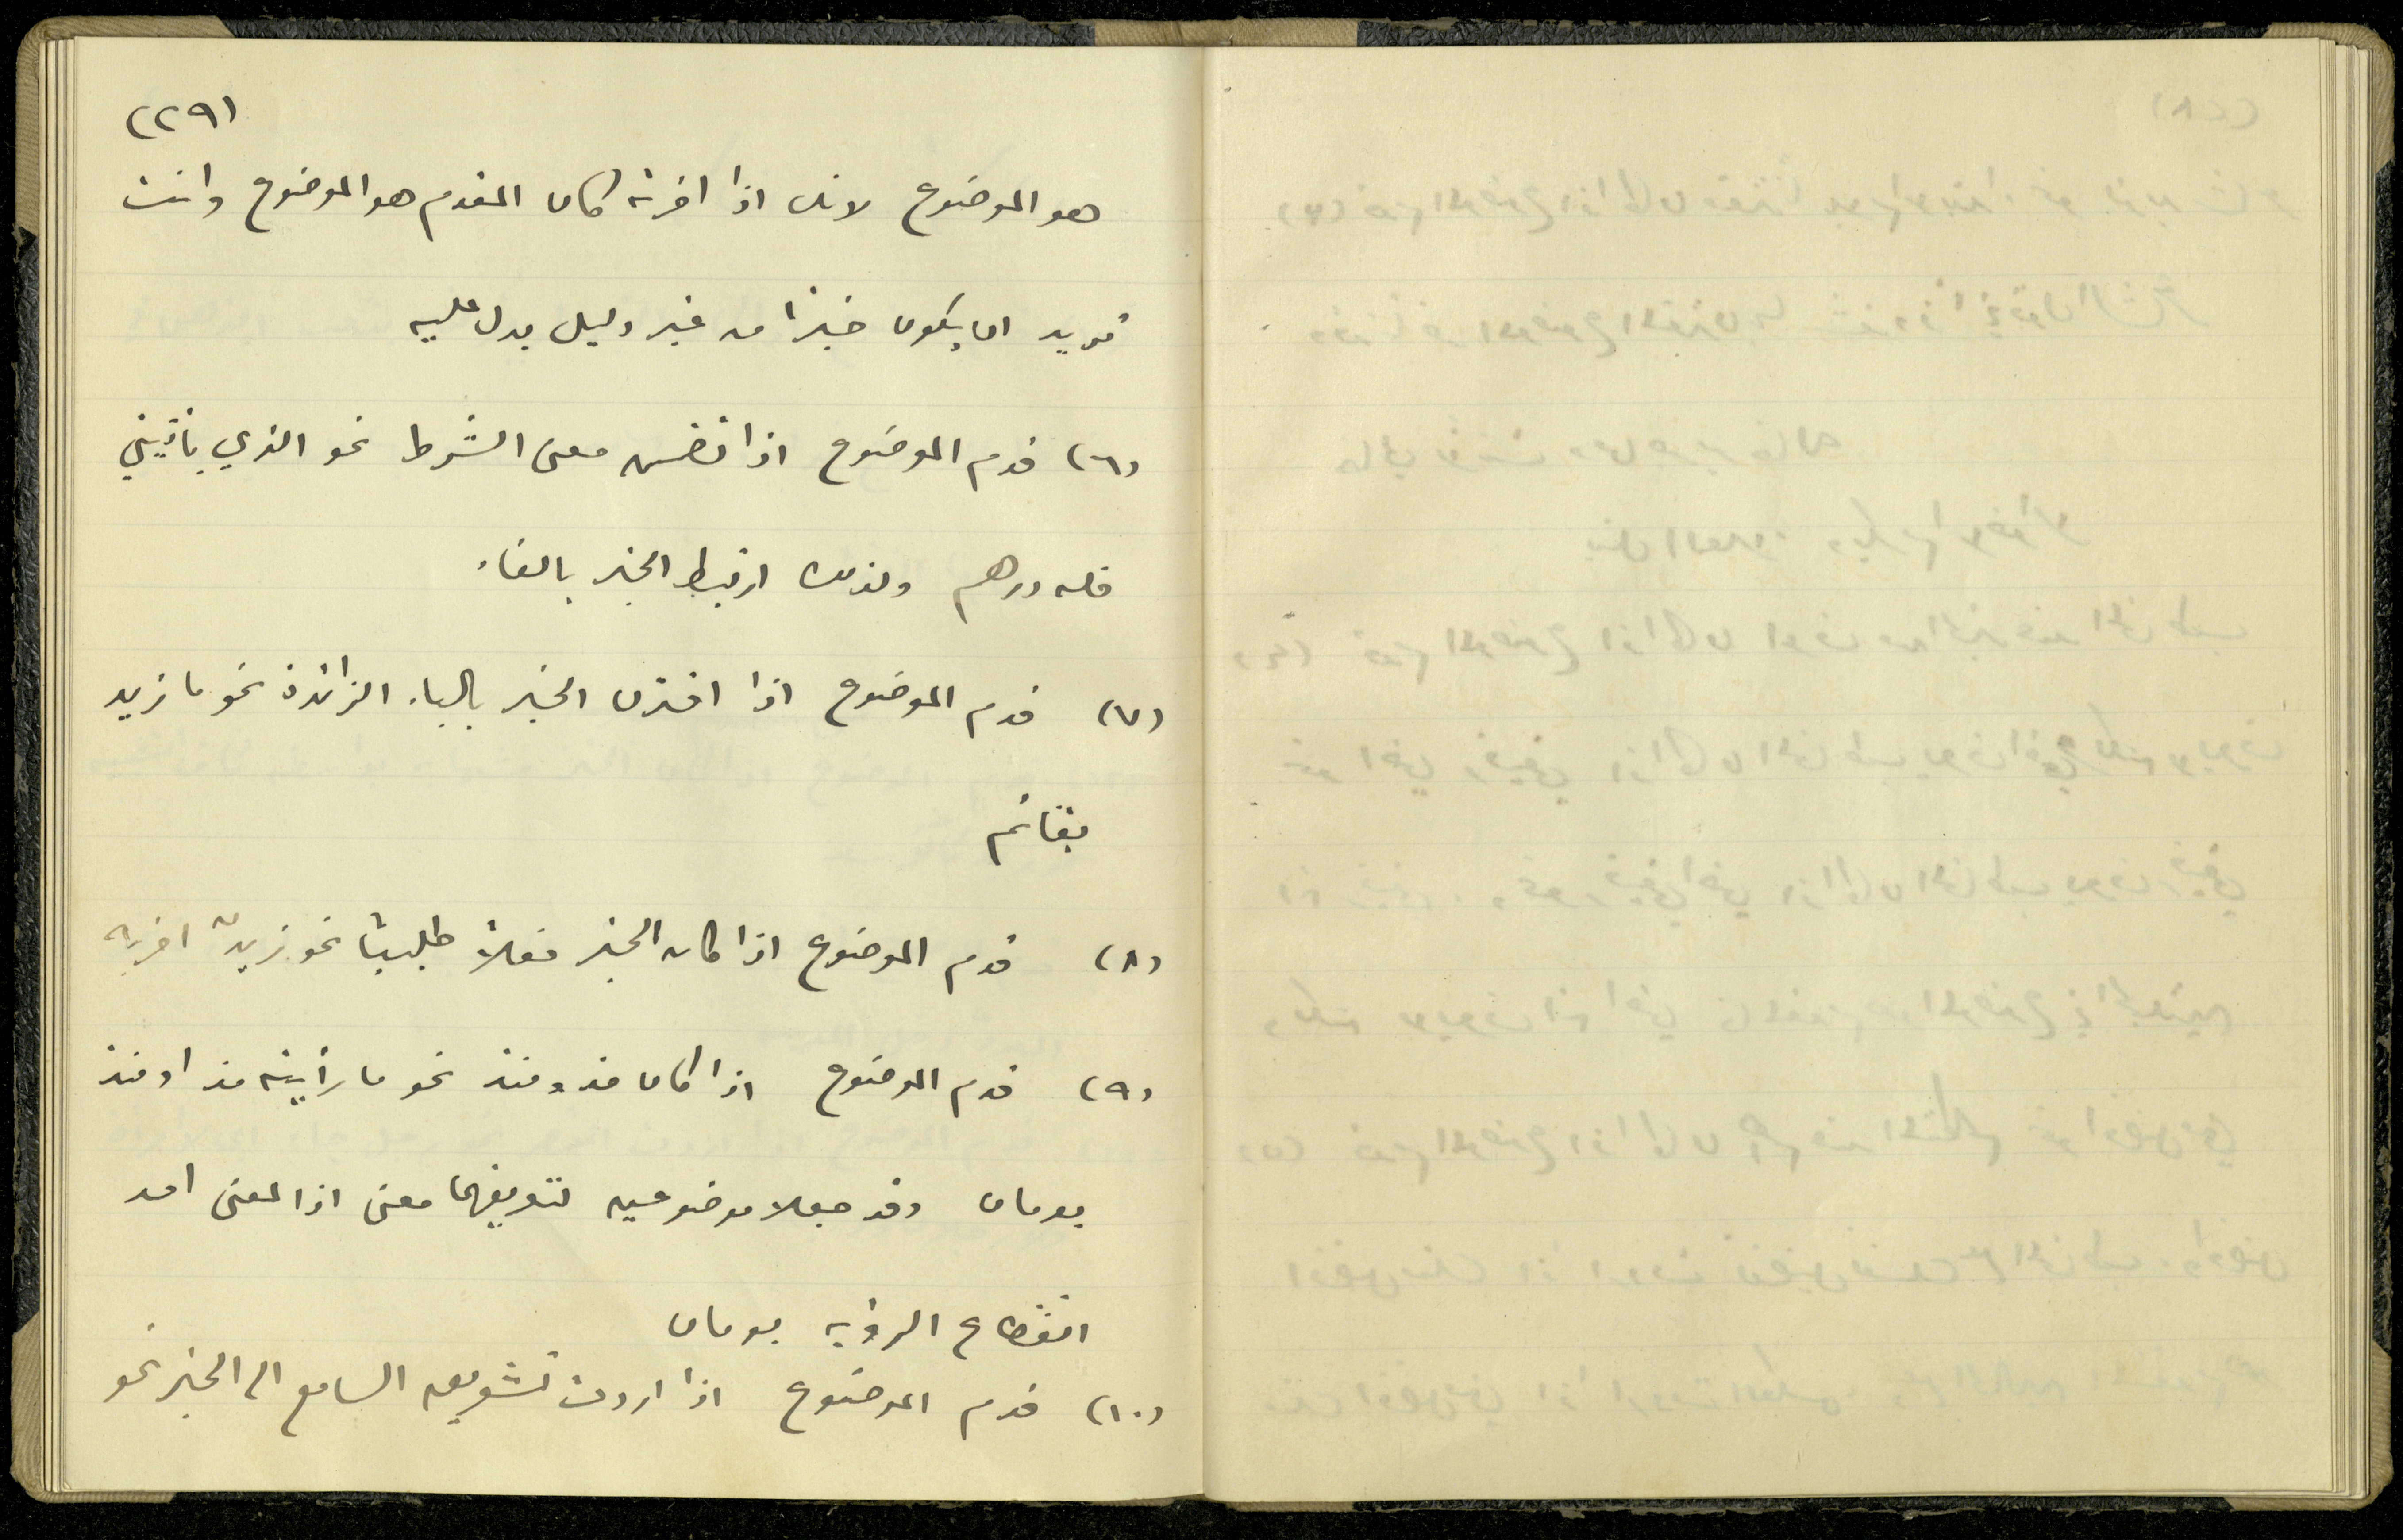 (٢٩)
هو الموضوع لانك اذا اخرته كان المقدم هو الموضوع وانت
تريد ان يكون خبرًا من غير دليل يدل عليه
(٦) قدم الموضوع اذا تضمن معنى الشرط نحو الذي يأتيني
فله درهم ولذلك ارتبط الخبر بالفاء
(٧) قدم الموضوع اذا اقترن الخبر بالباء الزائدة نحو ما زيد
بقائم
(٨) قدم الموضوع اذا كان الخبر فعلاً طلبيًا نحو زيدٌ اضربه
(٩) قدم الموضوع اذا كان مذ ومنذ نحو ما رأيته مذ او منذ
يومان وقد جعلا موضوعين لتعريفهما معنى اذ المعنى امد
انقطاع الرؤية يومان
(١٠) قدم الموضوع اذا اردت تشويق السامع الى الخبر نحو